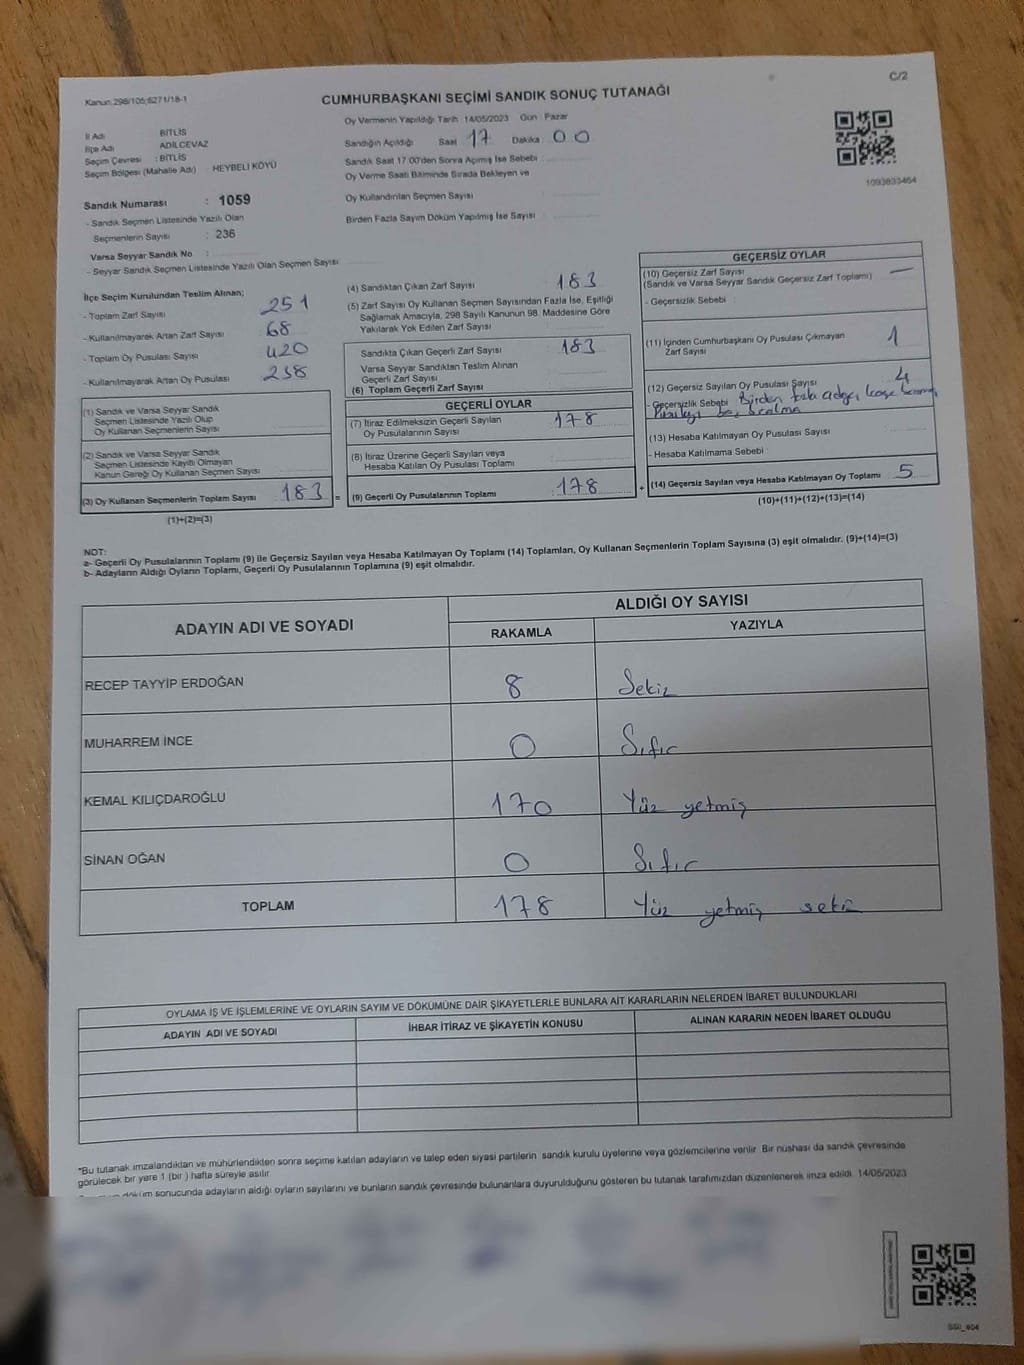 C/2
Kanun:298/105;6271/18-1
CUMHURBAŞKANI SEÇİMİ SANDIK SONUÇ TUTANAĞI
İl Adı BİTLİS
İlçe Adı ADİLCEVAZ
Seçim Çevresi : BİTLİS
Seçim Bölgesi (Mahalle Adı) HEYBELİ KÖYÜ
Sandık Numarası : 1059
- Sandık Seçmen Listesinde Yazılı Olan
Seçmenlerin Sayısı : 236
Varsa Seyyar Sandık No :
- Seyyar Sandık Seçmen Listesinde Yazılı Olan Seçmen Sayısı
Oy Vermenin Yapıldığı Tarih :14/05/2023 Gün : Pazar
Sandığın Açıldığı Saat 17 Dakika : 00
Sandık Saat 17.00'den Sonra Açımış İse Sebebi :
Oy Verme Saati Bitiminde Sırada Bekleyen ve
Oy Kullandırılan Seçmen Sayısı :
Birden Fazla Sayım Döküm Yapılmış İse Sayısı :
1093833464
İlçe Seçim Kurulundan Teslim Alınan;
- Toplam Zarf Sayısı 251
- Kullanılmayarak Artan Zarf Sayısı 68
- Toplam Oy Pusulası Sayısı 420
- Kullanılmayarak Artan Oy Pusulası 238
(1) Sandık ve Varsa Seyyar Sandık
Seçmen Listesinde Yazılı Olup
Oy Kullanan Seçmenlerin Sayısı
(2) Sandık ve Varsa Seyyar Sandık
Seçmen Listesinde Kayıtlı Olmayan
Kanun Gereği Oy Kullanan Seçmen Sayısı
(3) Oy Kullanan Seçmenlerin Toplam Sayısı 183 =
(1)+(2)=(3)
(4) Sandıktan Çıkan Zarf Sayısı : 183
(5) Zarf Sayısı Oy Kullanan Seçmen Sayısından Fazla İse, Eşitliği
Sağlamak Amacıyla, 298 Sayılı Kanunun 98. Maddesine Göre
Yakılarak Yok Edilen Zarf Sayısı :
Sandıkta Çıkan Geçerli Zarf Sayısı : 183
Varsa Seyyar Sandıktan Teslim Alınan
Geçerli Zarf Sayısı
(6) Toplam Geçerli Zarf Sayısı
GEÇERLİ OYLAR
(7) İtiraz Edilmeksizin Geçerli Sayılan
Oy Pusulalarının Sayısı 178
(8) İtiraz Üzerine Geçerli Sayılan veya
Hesaba Katılan Oy Pusulası Toplamı
(9) Geçerli Oy Pusulalarının Toplamı 178 +
GEÇERSİZ OYLAR
(10) Geçersiz Zarf Sayısı
(Sandık ve Varsa Seyyar Sandık Geçersiz Zarf Toplamı) —
- Geçersizlik Sebebi :
(11) İçinden Cumhurbaşkanı Oy Pusulası Çıkmayan
Zarf Sayısı 1
(12) Geçersiz Sayılan Oy Pusulası Sayısı : 4
- Geçersizlik Sebebi Birden fazla adaya kaşe
(13) Hesaba Katılmayan Oy Pusulası Sayısı
- Hesaba Katılmama Sebebi :
(14) Geçersiz Sayılan veya Hesaba Katılmayan Oy Toplamı : 5
(10)+(11)+(12)+(13)=(14)
NOT:
a- Geçerli Oy Pusulalarının Toplamı (9) ile Geçersiz Sayılan veya Hesaba Katılmayan Oy Toplamı (14) Toplamları, Oy Kullanan Seçmenlerin Toplam Sayısına (3) eşit olmalıdır. (9)+(14)=(3)
b- Adayların Aldığı Oyların Toplamı, Geçerli Oy Pusulalarının Toplamına (9) eşit olmalıdır.
ADAYIN ADI VE SOYADI
ALDIĞI OY SAYISI
RAKAMLA YAZIYLA
RECEP TAYYİP ERDOĞAN 8 Sekiz
MUHARREM İNCE 0 Sıfır
KEMAL KILIÇDAROĞLU 170 Yüz yetmiş
SİNAN OĞAN 0 Sıfır
TOPLAM 178 Yüz yetmiş sekiz
OYLAMA İŞ VE İŞLEMLERİNE VE OYLARIN SAYIM VE DÖKÜMÜNE DAİR ŞİKAYETLERLE BUNLARA AİT KARARLARIN NELERDEN İBARET BULUNDUKLARI
ADAYIN ADI VE SOYADI İHBAR İTİRAZ VE ŞİKAYETİN KONUSU ALINAN KARARIN NEDEN İBARET OLDUĞU
*Bu tutanak imzalandıktan ve mühürlendikten sonra seçime katılan adayların ve talep eden siyasi partilerin sandık kurulu üyelerine veya gözlemcilerine verilir. Bir nüshası da sandık çevresinde
görülecek bir yere 1 (bir ) hafta süreyle asılır.
döküm sonucunda adayların aldığı oyların sayılarını ve bunların sandık çevresinde bulunanlara duyurulduğunu gösteren bu tutanak tarafımızdan düzenlenerek imza edildi. 14/05/2023